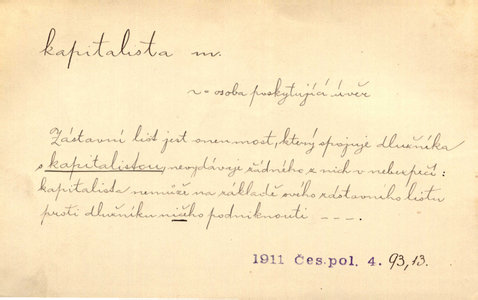 kapitalista m.
~ = osoba poskytující úvěr
Zástavní list jest onen most, který spojuje dlužníka
s kapitalistou, nevydávaje žádného z nich v nebezpečí:
kapitalista nemůže na základě svého zástavního listu
proti dlužníku ničeho podniknouti – – – .
1911 Čes. pol. 4. 93,13.